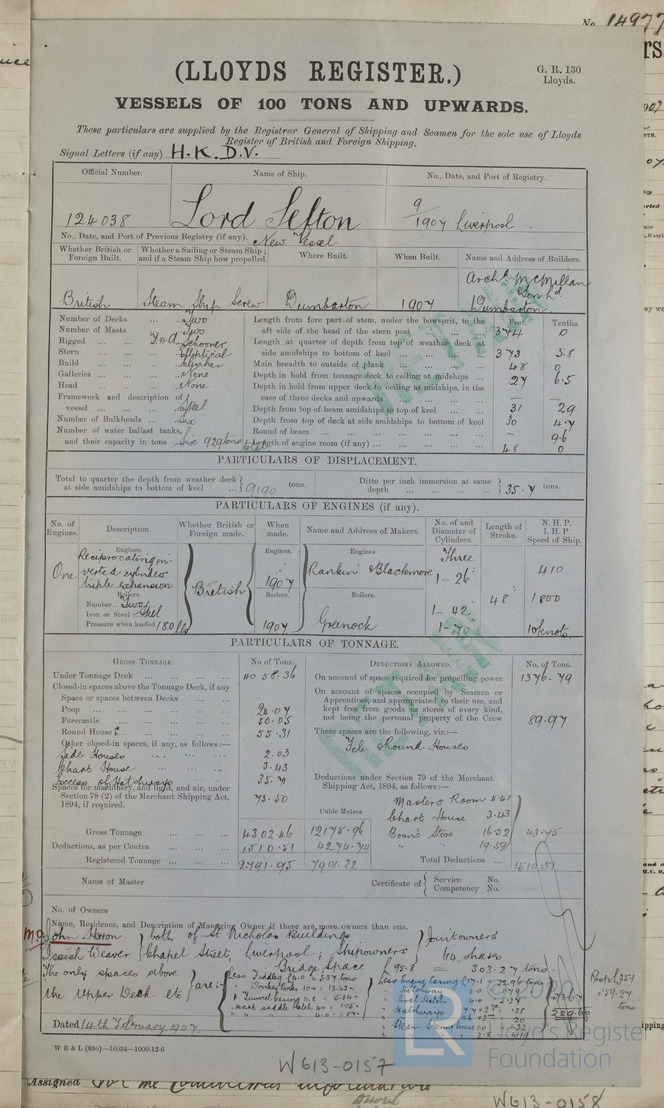 No. 14977
(LLOYDS REGISTER.)
G. R. 130
Lloyds.
VESSELS OF 100 TONS AND UPWARDS.
These particulars are supplied by the Registrar General of Shipping and Seamen for the sole use of Lloyds
Register of British and Foreign Shipping.
Signal Letters (if any) H.K.D.V.
Official Number. Name of Ship. No., Date, and Port of Registry.
124038 Lord Sefton 9/1907 Liverpool.
No., Date, and Port of Previous Registry (if any). New Vessel
Whether British or Foreign Built. Whether a Sailing or Steam Ship; and if a Steam Ship how propelled. Where Built. When Built. Name and Address of Builders.
British Steam Ship Screw Dumbarton 1907 Archd McMillan & Son Ld Dumbarton.
Number of Decks ... Two
Number of Masts ... Two
Rigged ... F & A Schooner
Stern ... Elliptical
Build ... Clincher
Galleries ... None
Head ... None
Framework and description of vessel ... Steel
Number of Bulkheads ... Six
Number of water ballast tanks, and their capacity in tons Six 929 tons
Feet. Tenths.
Length from fore part of stem, under the bowsprit, to the aft side of the head of the stern post 374 0
Length at quarter of depth from top of weather deck at side amidships to bottom of keel 373 5.8
Main breadth to outside of plank 48 0
Depth in hold from tonnage deck to ceiling at midships 27 6.5
Depth in hold from upper deck to ceiling at midships, in the case of three decks and upwards — —
Depth from top of beam amidships to top of keel 31 29
Depth from top of deck at side amidships to bottom of keel 30 4.7
Round of beam — 9.6
Length of engine room (if any) 48 0
PARTICULARS OF DISPLACEMENT.
Total to quarter the depth from weather deck at side amidships to bottom of keel 9190 tons. Ditto per inch immersion at same depth 35.7 tons.
PARTICULARS OF ENGINES (if any).
No. of Engines. Description. Whether British or Foreign made. When made. Name and Address of Makers. No. of and Diameter of Cylinders. Length of Stroke. N.H.P. I.H.P. Speed of Ship.
One
Engines.
Reciprocating inverted cylinder triple expansion
Boilers.
Number Two
Iron or Steel Steel
Pressure when loaded 180 lbs
British
Engines. 1907
Boilers. 1907
Engines Rankin & Blackmore
Boilers. Greenock
Three
1-26"
1-42"
48"
410
1800
10 knots
PARTICULARS OF TONNAGE.
GROSS TONNAGE. No. of Tons.
Under Tonnage Deck 4058.36
Closed-in spaces above the Tonnage Deck, if any
Space or spaces between Decks
Poop
Forecastle 50.05
Round House 55.31
Other closed-in spaces, if any, as follows:—
Side Houses 2.03
Chart House 3.43
Excess of Hatchways
Spaces for machinery, and light, and air, under Section 78 (2) of the Merchant Shipping Act, 1894, if required. 73.50
Cubic Metres
Gross Tonnage 4302.46 12175.96
Deductions, as per Contra 1510.51 4274.74
Registered Tonnage 2791.95 7901.22
DEDUCTIONS ALLOWED. No. of Tons.
On account of space required for propelling power 1376.79
On account of spaces occupied by Seamen or Apprentices and appropriated to their use, and kept free from goods or stores of every kind, not being the personal property of the Crew 89.97
These spaces are the following, viz.:—
Fcle & Round Houses
Deductions under Section 79 of the Merchant Shipping Act, 1894, as follows:—
Master's Room 4.41
Chart House 3.43
Boatn's Store 16.32
19.59
43.75
Total Deductions 1510.51
Name of Master Certificate of Service No. Competency No.
No. of Owners
Name, Residence, and Description of Managing Owner if there are more owners than one.
John Heron
Isaiah Weaver
both of St Nicholas Buildings
Chapel Street, Liverpool; Shipowners
Joint owners
64 shares
The only spaces above the Upper Deck etc are:—
Bridge Space
95.8 = 303.27 tons
Dated 14th February 1907.
W B & L (83o)—16034—1000-12-6
© 2020
LR
Lloyd's Register
Foundation
W613-0157
W613-0158